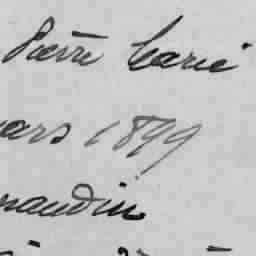 Pierre Carié
mars 1899
naudin